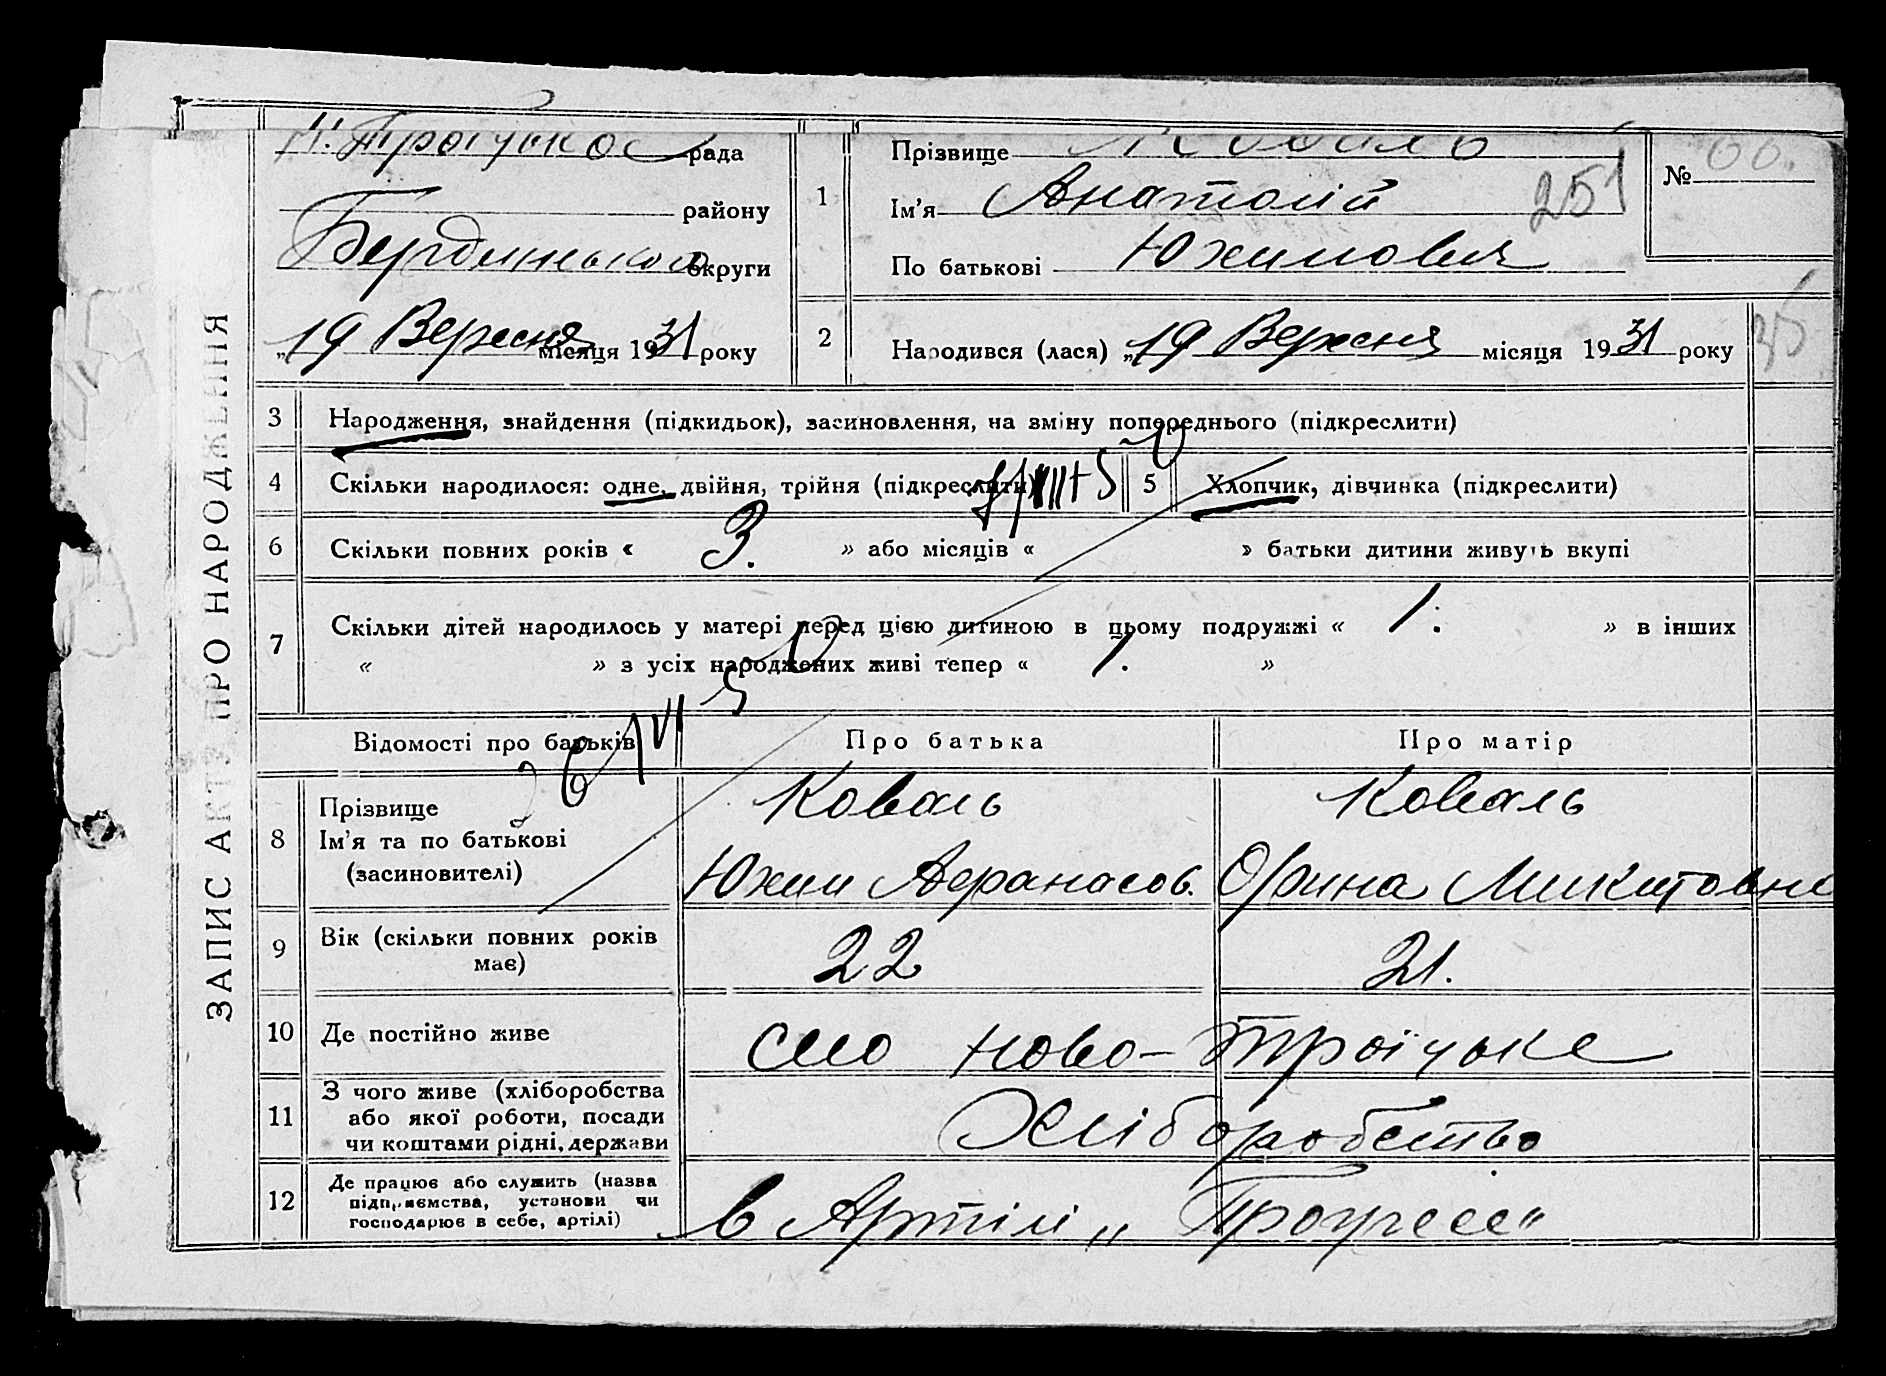 ЗАПИС АКТУ ПРО НАРОДЖЕННЯ
Н. Троіцькоі рада
району
Бердянського округи
„19 Вересня місяця 1931 року
1
Прізвище Коваль
Ім'я Анатолій
По батькові Юхимович
251
№ 66.
2
Народився (лася) „19 Вересня місяця 1931 року
3 Народження, знайдення (підкидьок), засиновлення, на зміну попереднього (підкреслити)
4 Скільки народилося: одне, двійня, трійня (підкреслити)
5 Хлопчик, дівчинка (підкреслити)
6 Скільки повних років « 3. » або місяців « » батьки дитини живуть вкупі
7 Скільки дітей народилось у матері перед цією дитиною в цьому подружжі « 1. » в інших
« » з усіх народжених живі тепер « 1. »
Відомості про батьків Про батька Про матір
8 Прізвище Коваль Коваль
Ім'я та по батькові
(засиновителі) Юхим Афранасов. Орина Микитовна
9 Вік (скільки повних років має) 22 21.
10 Де постійно живе село Ново-Троїцьке
11 З чого живе (хліборобства
або якої роботи, посади
чи коштами рідні, держави Хліборобство
12 Де працює або служить (назва
підприємства, установи чи
господарює в себе, артілі) в Артілі „Прогрес"